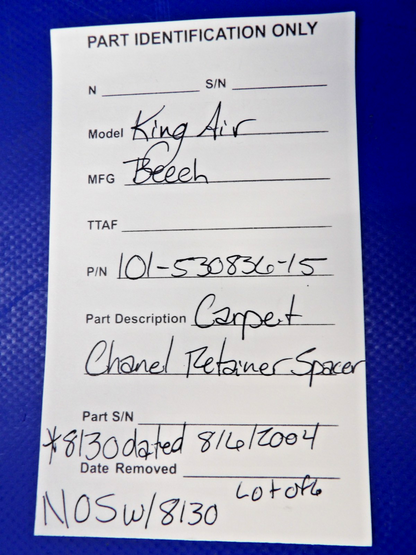 PART IDENTIFICATION ONLY
N S/N
Model King Air
MFG Beech
TTAF
P/N 101-530836-15
Part Description Carpet
Chanel Retainer Spacer
Part S/N
*8130 dated 8/6/2004
Date Removed
Lot of 6
NOS W/8130